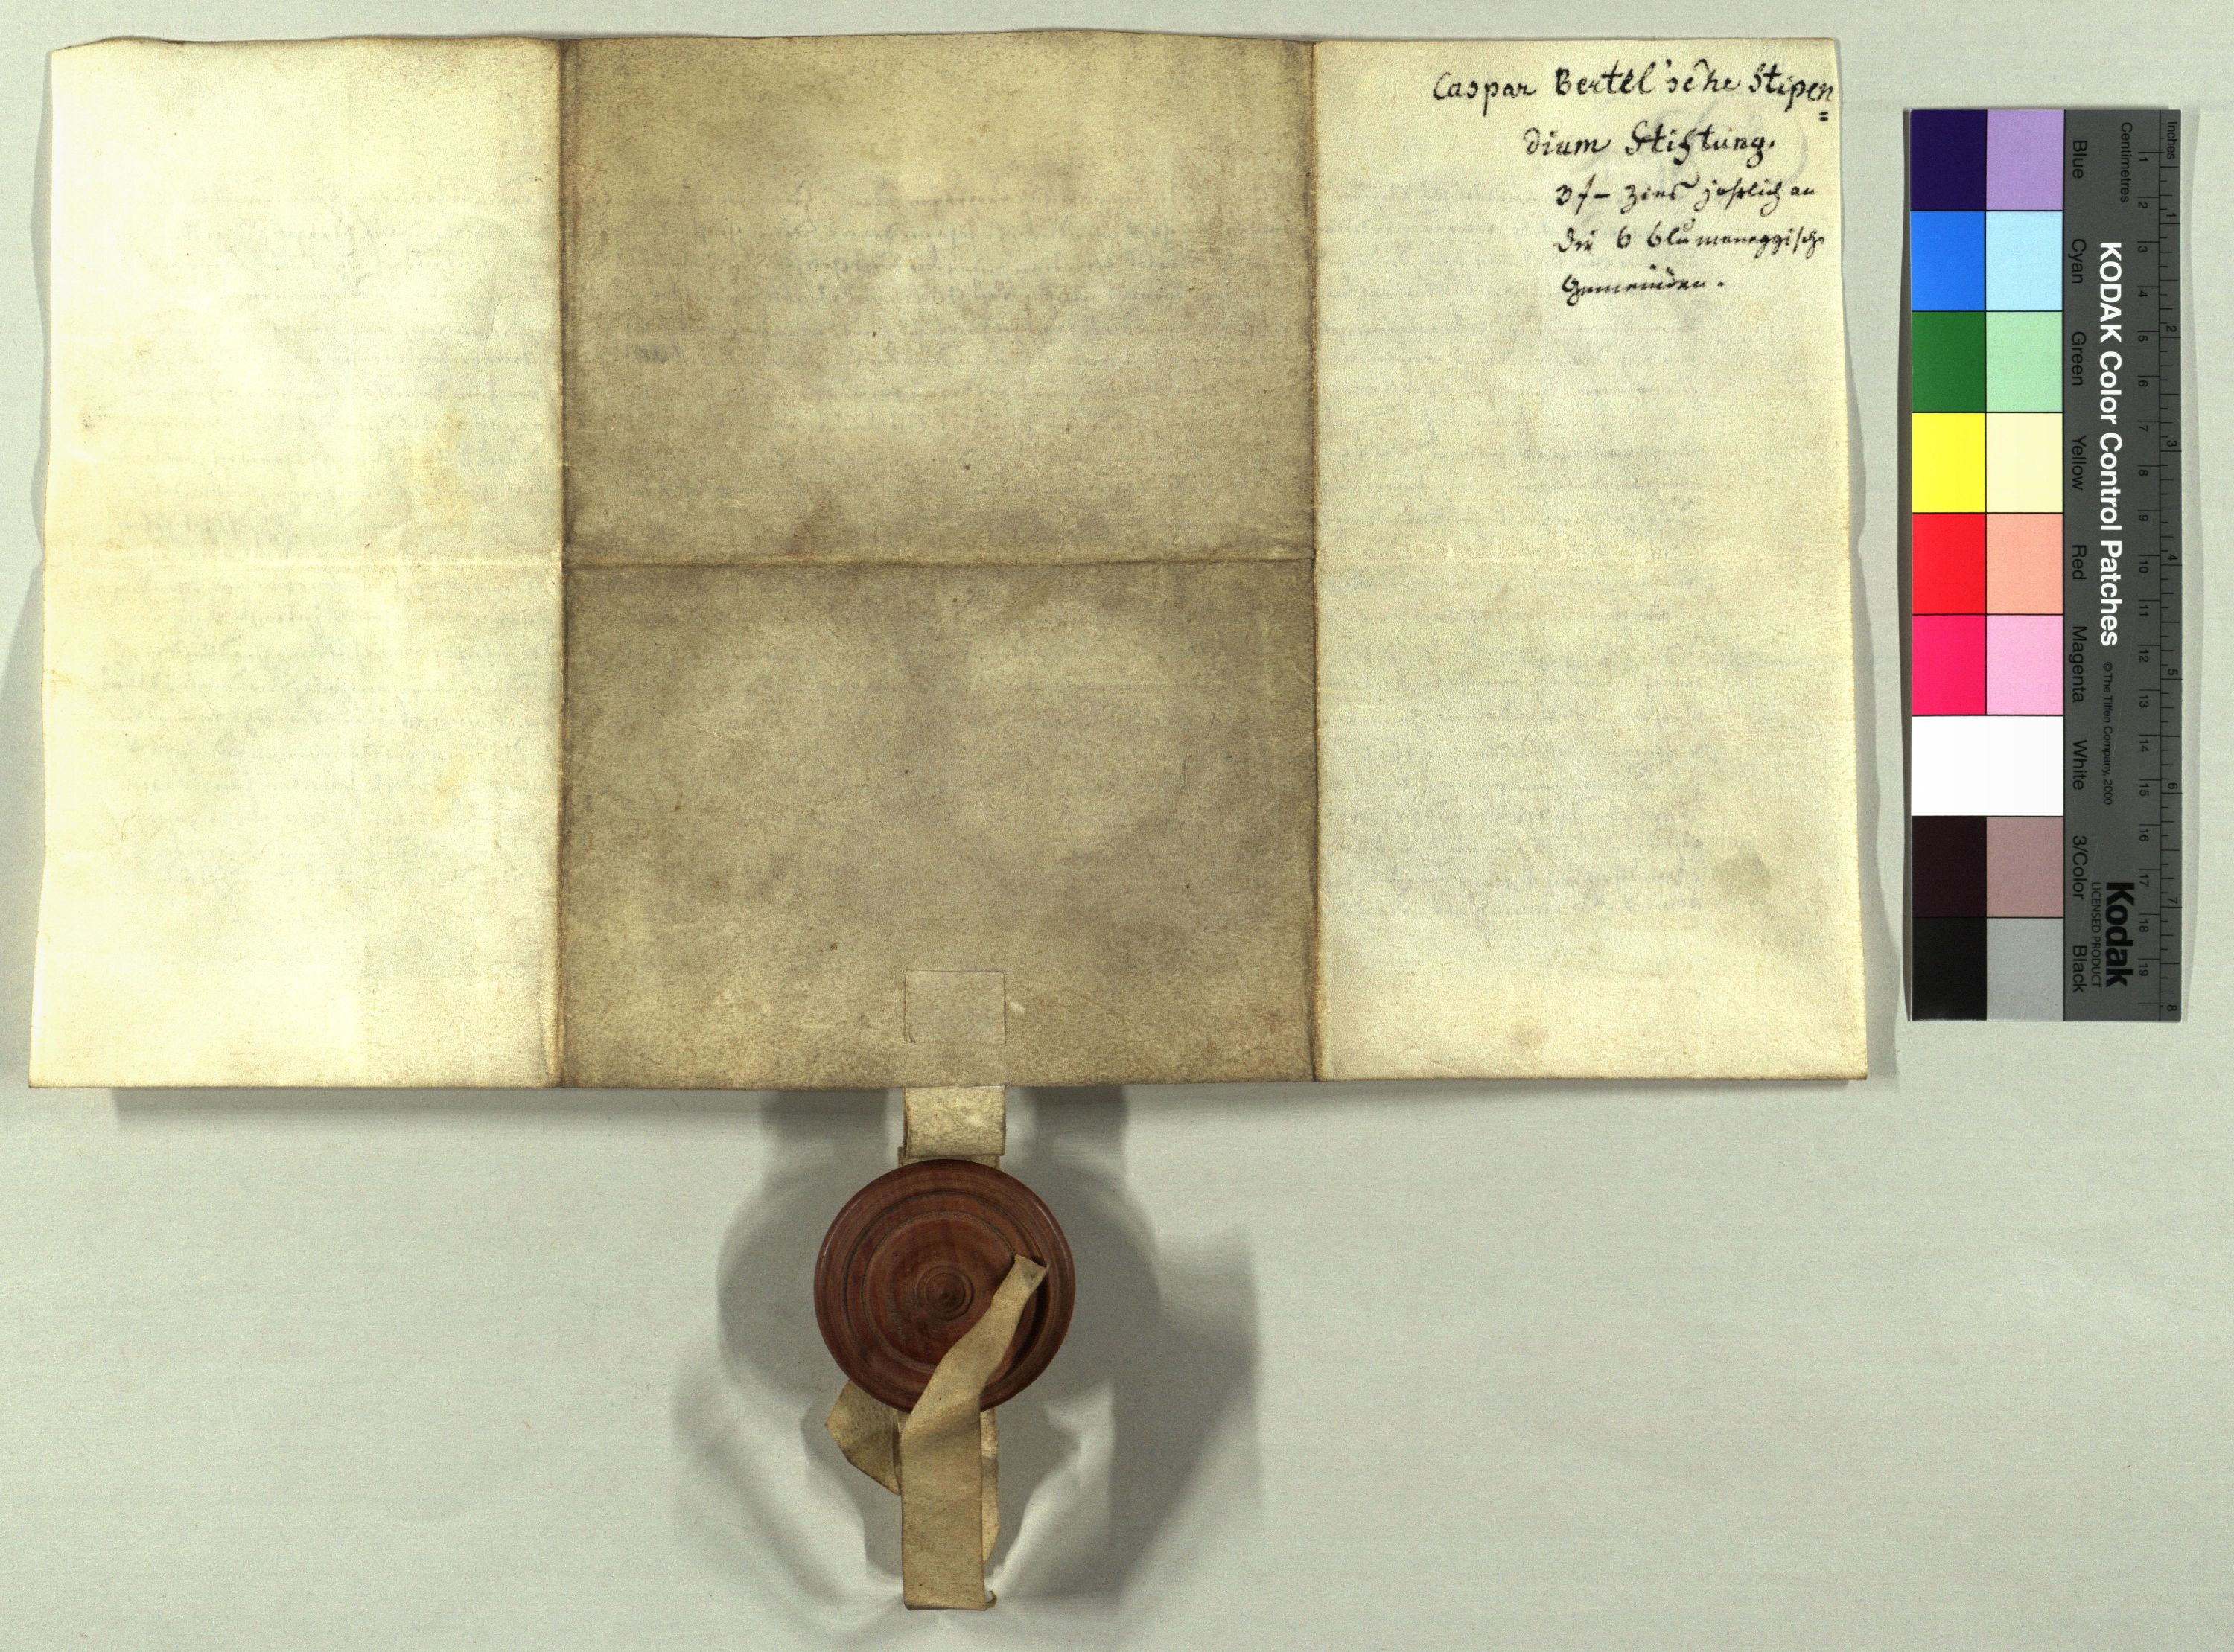 Caspar Bertel'sche Stipen=
dium Stiftung.
3 f – Zins jährlich an
die 6 blumeneggische
Gemeinden.
KODAK Color Control Patches
© The Tiffen Company, 2000
Kodak
LICENSED PRODUCT
Blue
Cyan
Green
Yellow
Red
Magenta
White
3/Color
Black
Inches
1 2 3 4 5 6 7 8
Centimetres
1 2 3 4 5 6 7 8 9 10 11 12 13 14 15 16 17 18 19